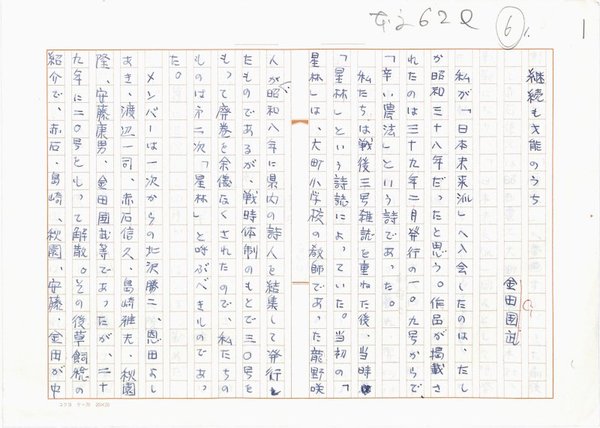 本文62Q
6
1
継続も才能のうち
金田国武
9
私が「日本未来派」へ入会したのは、たし
か昭和三十八年だったと思う。作品が掲載さ
れたのは三十九年二月発行の一〇九号からで
「辛い農法」という詩であった。
私たちは戦後三号雑誌を重ねた後、当時
「星林」という詩誌によっていた。当初の「
星林」は、大町小学校の教師であった龍野咲
人が昭和八年に県内の詩人を結集して発行し
たものであるが、戦時体制のもとで三〇号を
もって廃巻を余儀なくされたので、私たちの
ものは第二次「星林」と呼ぶべきものであっ
た。
メンバーは一次からの 沢勝二、恩田よし
あき、渡辺一司、赤石信久、島崎雅夫、秋園
隆、安藤康男、金田国武等であったが、二十
九年に二〇号をもって解散。その後草飼稔の
紹介で、赤石、島崎、秋園、安藤、金田が中
コクヨ ケ-70 20×20